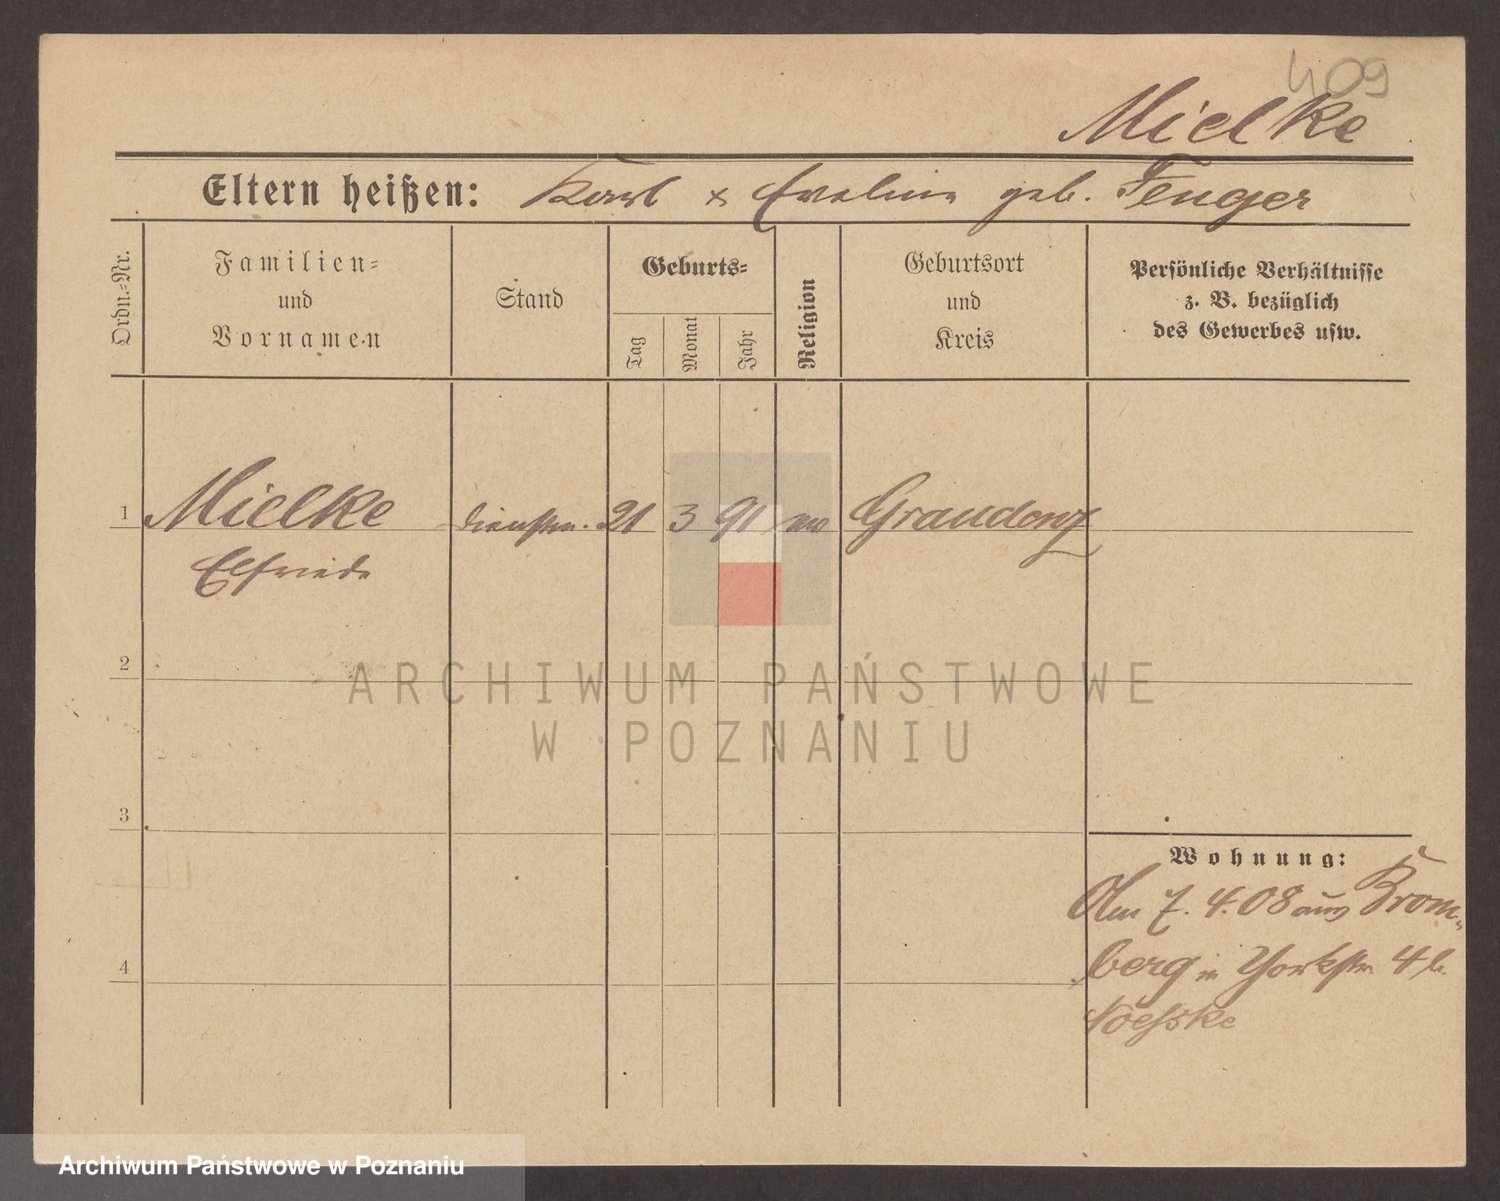 409
Mielke
Eltern heißen: Karl & Eveline geb. Fenger
Ordn.-Nr.
Familien-
und
Vornamen
Stand
Geburts-
Tag
Monat
Jahr
Religion
Geburtsort
und
Kreis
Persönliche Verhältnisse
z. B. bezüglich
des Gewerbes usw.
1 Mielke 21 3 91 ev Graudenz
Elfriede
2
ARCHIWUM PAŃSTWOWE
W POZNANIU
3
Wohnung:
Am 7. 4. 08 aus Brom-
berg in Yorkstr. 4 b.
4
Archiwum Państwowe w Poznaniu